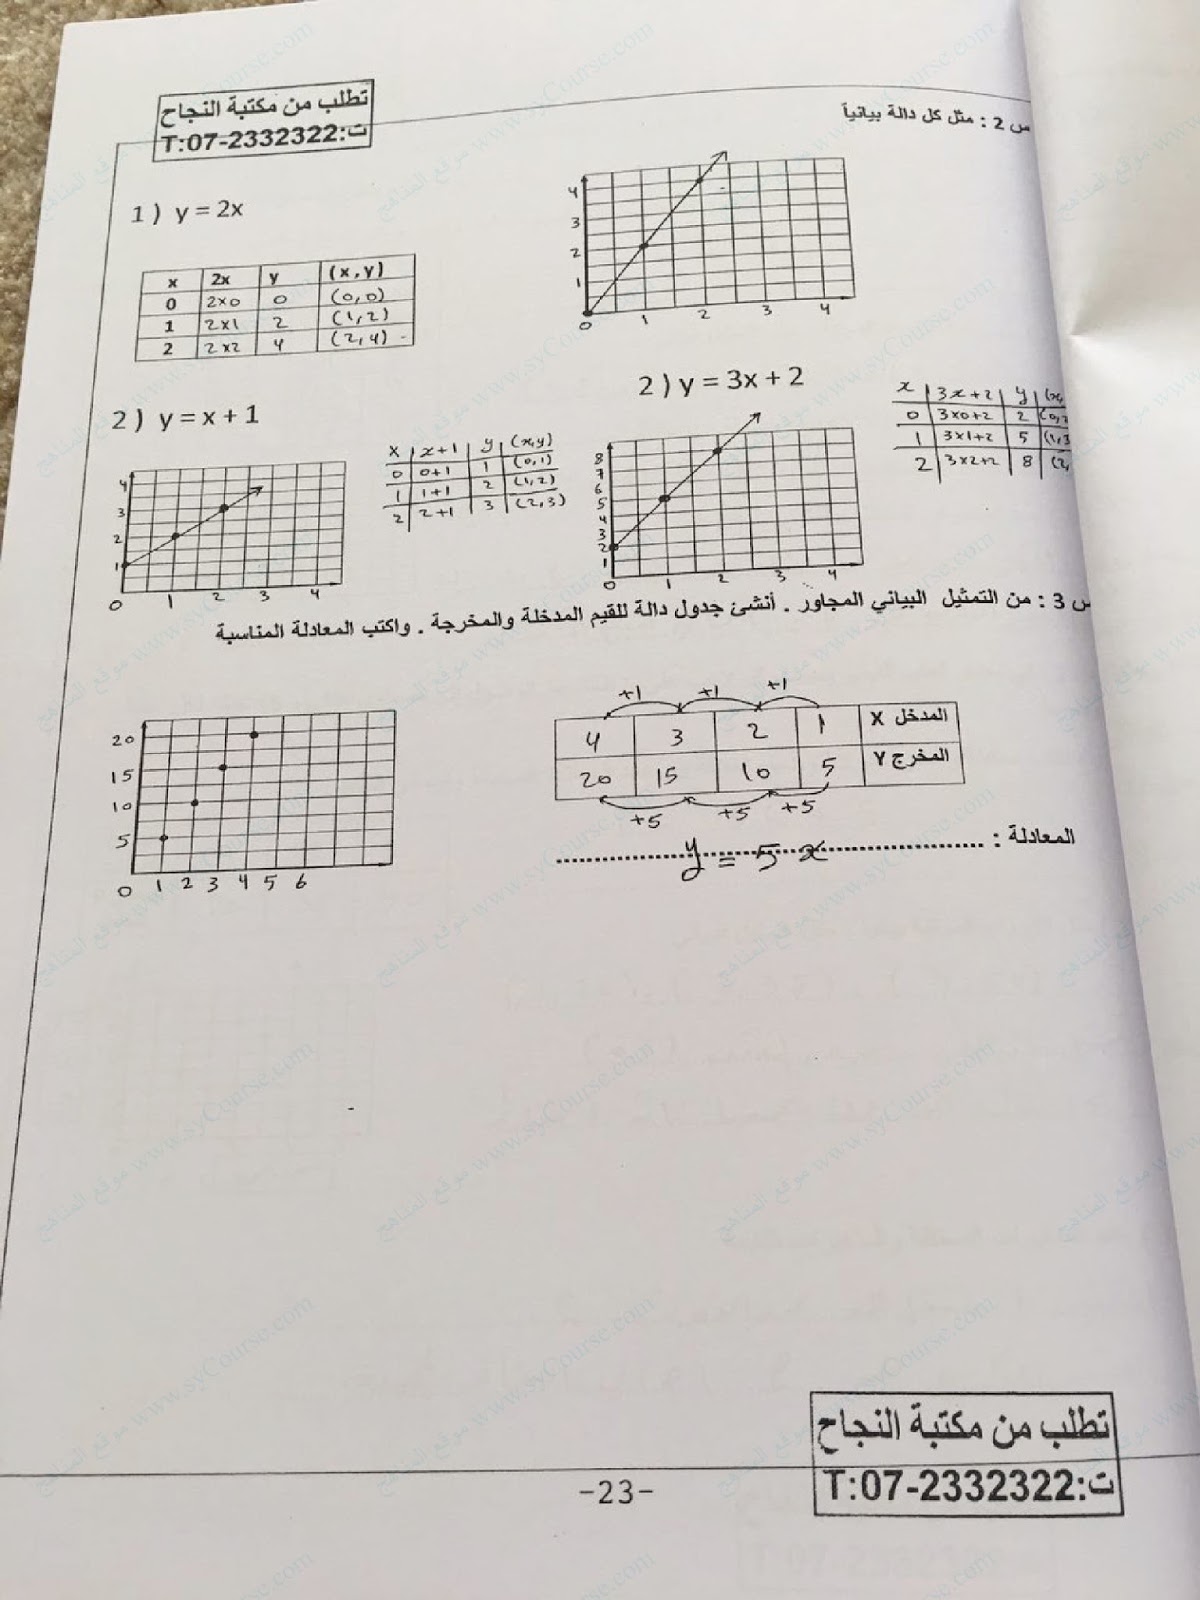 تطلب من مكتبة النجاح
ت:T:07-2332322
س 2 : مثل كل دالة بيانياً
1 ) y = 2x
x 2x y (x,y)
0 2×0 0 (0,0)
1 2×1 2 (1,2)
2 2×2 4 (2,4)
4
3
2
1
0 1 2 3 4
2 ) y = x + 1
x x+1 y (x,y)
0 0+1 1 (0,1)
1 1+1 2 (1,2)
2 2+1 3 (2,3)
4
3
2
1
0 1 2 3 4
2 ) y = 3x + 2
x 3x+2 y
0 3×0+2 2
1 3×1+2 5
2 3×2+2 8
8
7
6
5
4
3
2
1
0 1 2 3 4
س 3 : من التمثيل البياني المجاور . أنشئ جدول دالة للقيم المدخلة والمخرجة . واكتب المعادلة المناسبة
20
15
10
5
0 1 2 3 4 5 6
+1 +1 +1
المدخل X 1 2 3 4
المخرج Y 5 10 15 20
+5 +5 +5
المعادلة : y = 5x
تطلب من مكتبة النجاح
ت:T:07-2332322
-23-
موقع المناهج www.syCourse.com